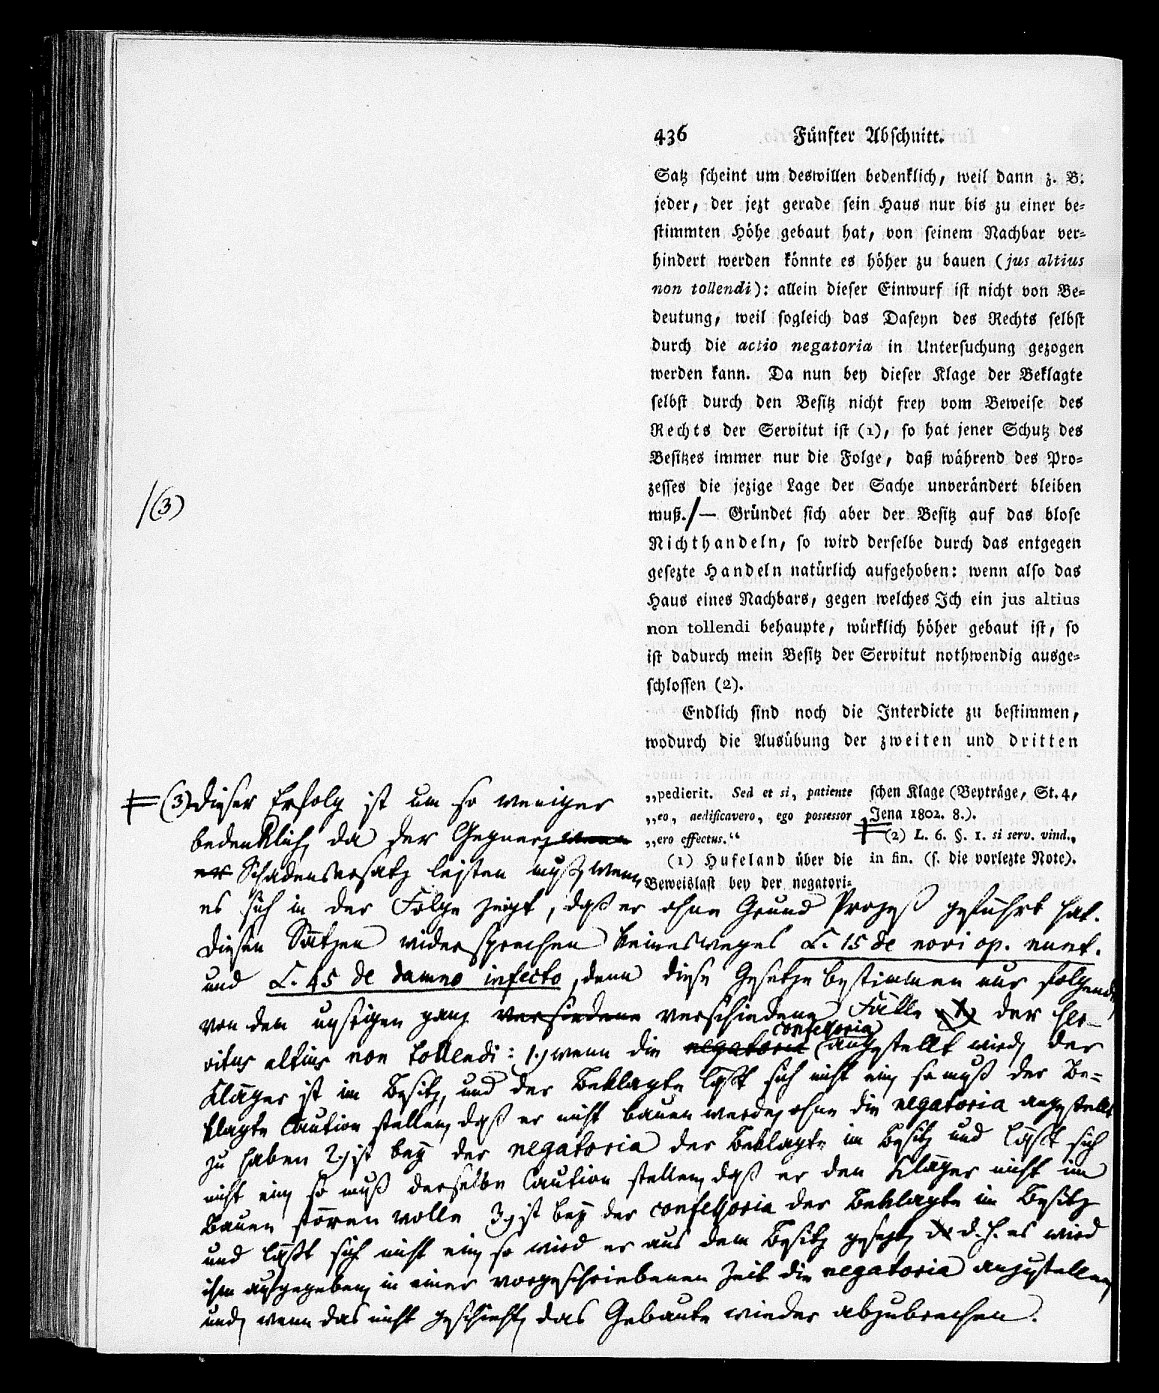 436 Fünfter Abschnitt.
Satz scheint um deswillen bedenklich, weil dann z. B.
jeder, der jezt gerade sein Haus nur bis zu einer be-
stimmten Höhe gebaut hat, von seinem Nachbar ver-
hindert werden könnte es höher zu bauen (jus altius
non tollendi): allein dieser Einwurf ist nicht von Be-
deutung, weil sogleich das Daseyn des Rechts selbst
durch die actio negatoria in Untersuchung gezogen
werden kann. Da nun bey dieser Klage der Beklagte
selbst durch den Besitz nicht frey vom Beweise des
Rechts der Servitut ist (1), so hat jener Schutz des
Besitzes immer nur die Folge, daß während des Pro-
zesses die jezige Lage der Sache unverändert bleiben
/(3)
muß./— Gründet sich aber der Besitz auf das blose
Nichthandeln, so wird derselbe durch das entgegen
gesezte Handeln natürlich aufgehoben: wenn also das
Haus eines Nachbars, gegen welches Ich ein jus altius
non tollendi behaupte, würklich höher gebaut ist, so
ist dadurch mein Besitz der Servitut nothwendig ausge-
schlossen (2).
Endlich sind noch die Interdicte zu bestimmen,
wodurch die Ausübung der zweiten und dritten
„pedierit. Sed et si, patiente
„eo, aedificavero, ego possessor
„ero effectus.“
(1) Hufeland über die
Beweislast bey der negatori-
schen Klage (Beyträge, St. 4,
Jena 1802. 8.).
(2) L. 6. §. 1. si serv. vind.,
in fin. (s. die vorlezte Note).
(3) dieser Erfolg ist um so weniger
bedenklich, da der Gegner, wenn
er Schadensersatz leisten muß, wenn
es sich in der Folge zeigt, daß er ohne Grund Prozeß geführt hat.
Diesen Sätzen widersprechen keinesweges L. 15 de novi op. nunt.
und L. 45 de damno infecto, denn diese Gesetze bestimmen nur folgende,
von den unsrigen ganz versiedene verschiedene Fälle der Ser-
vitus altius non tollendi: 1.) wenn die negatoria confessoria angestellt wird, der
Kläger ist im Besitz, und der Beklagte läßt sich nicht ein, so muß der Be-
klagte Caution stellen, daß er nicht bauen werde, ohne die negatoria angestellt
zu haben 2.) ist bey der negatoria der Beklagte im Besitz und läßt sich
nicht ein, so muß derselbe Caution stellen, daß er den Kläger nicht im
Bauen stören wolle 3.) ist bey der confessoria der Beklagte im Besitz
und läßt sich nicht ein, so wird er aus dem Besitz gesezt, d. h. es wird
ihm aufgegeben, in einer vorgeschriebenen Zeit die negatoria anzustellen,
und, wenn das nicht geschieht, das Gebaute wieder abzubrechen.